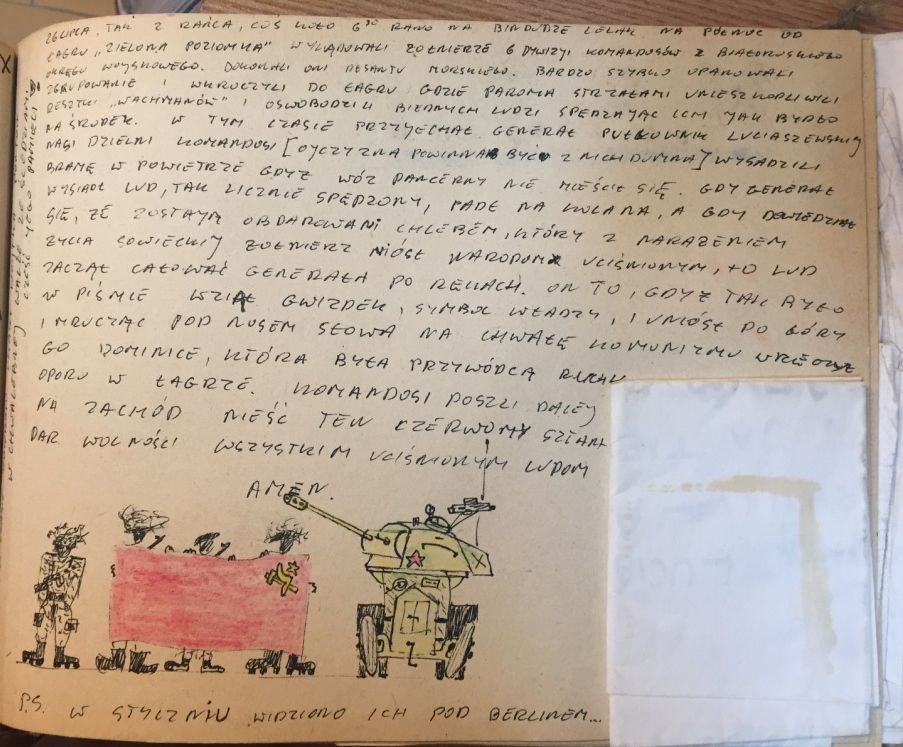 26 LIPCA, TAK Z RAŃCA, COŚ KOŁO 6³⁰ RANO NA BINDUDZE LELAK NA PÓŁNOC OD
ŁAGRU „ZIELONA POZIOMKA" WYLĄDOWALI ŻOŁNIERZE 6 DWIZYI KOMANDOSÓW Z BIAŁORUSKIEGO
OKRĘGU WOJSKOWEGO. DOKONALI ONI DESANTU MORSKIEGO. BARDZO SZYBKO OPANOWALI
ZGRUPOWANIE I WKROCZYLI DO ŁAGRU GDZIE PAROMA STRZAŁAMI UNIESZKODLIWILI
RESZTKI „WACHMANÓW" I OSWOBODZILI BIEDNYCH LUDZI SPĘDZAJĄC ICH JAK BYDŁO
NA ŚRODEK. W TYM CZASIE PRZYJECHAŁ GENERAŁ PUŁKOWNIK LUCIASZEWSKIJ
NASI DZIELNI KOMANDOSI [OJCZYZNA POWINNA BYĆ Z NICH DUMNA] WYSADZILI
BRAMĘ W POWIETRZE GDYŻ WÓZ PANCERNY NIE MIEŚCIŁ SIĘ. GDY GENERAŁ
WYSIADŁ LUD, TAK LICZNIE SPĘDZONY, PADŁ NA KOLANA, A GDY DOWIEDZIAŁ
SIĘ, ŻE ZOSTANĄ OBDAROWANI CHLEBEM, KTÓRY Z NARAŻENIEM
ŻYCIA SOWIECKIJ ŻOŁNIERZ NIÓSŁ NARODOM UCIŚNIONYM, TO LUD
ZACZĄŁ CAŁOWAĆ GENERAŁA PO RĘKACH. ON TO, GDYŻ TAK BYŁO
W PIŚMIE WZIĄŁ GWIZDEK, SYMBOL WŁADZY, I UNIÓSŁ DO GÓRY
I MRUCZĄC POD NOSEM SŁOWA NA CHWAŁĘ KOMUNIZMU WRĘCZYŁ
GO DOMINICE, KTÓRA BYŁA PRZYWÓDCĄ RUCHU
OPORU W ŁAGRZE. KOMANDOSI POSZLI DALEJ
NA ZACHÓD NIEŚĆ TEN CZERWONY SZTAN
DAR WOLNOŚCI WSZYSTKIM UCIŚNIONYM LUDOM
AMEN.
P.S. W STYCZNIU WIDZIANO ICH POD BERLINEM...